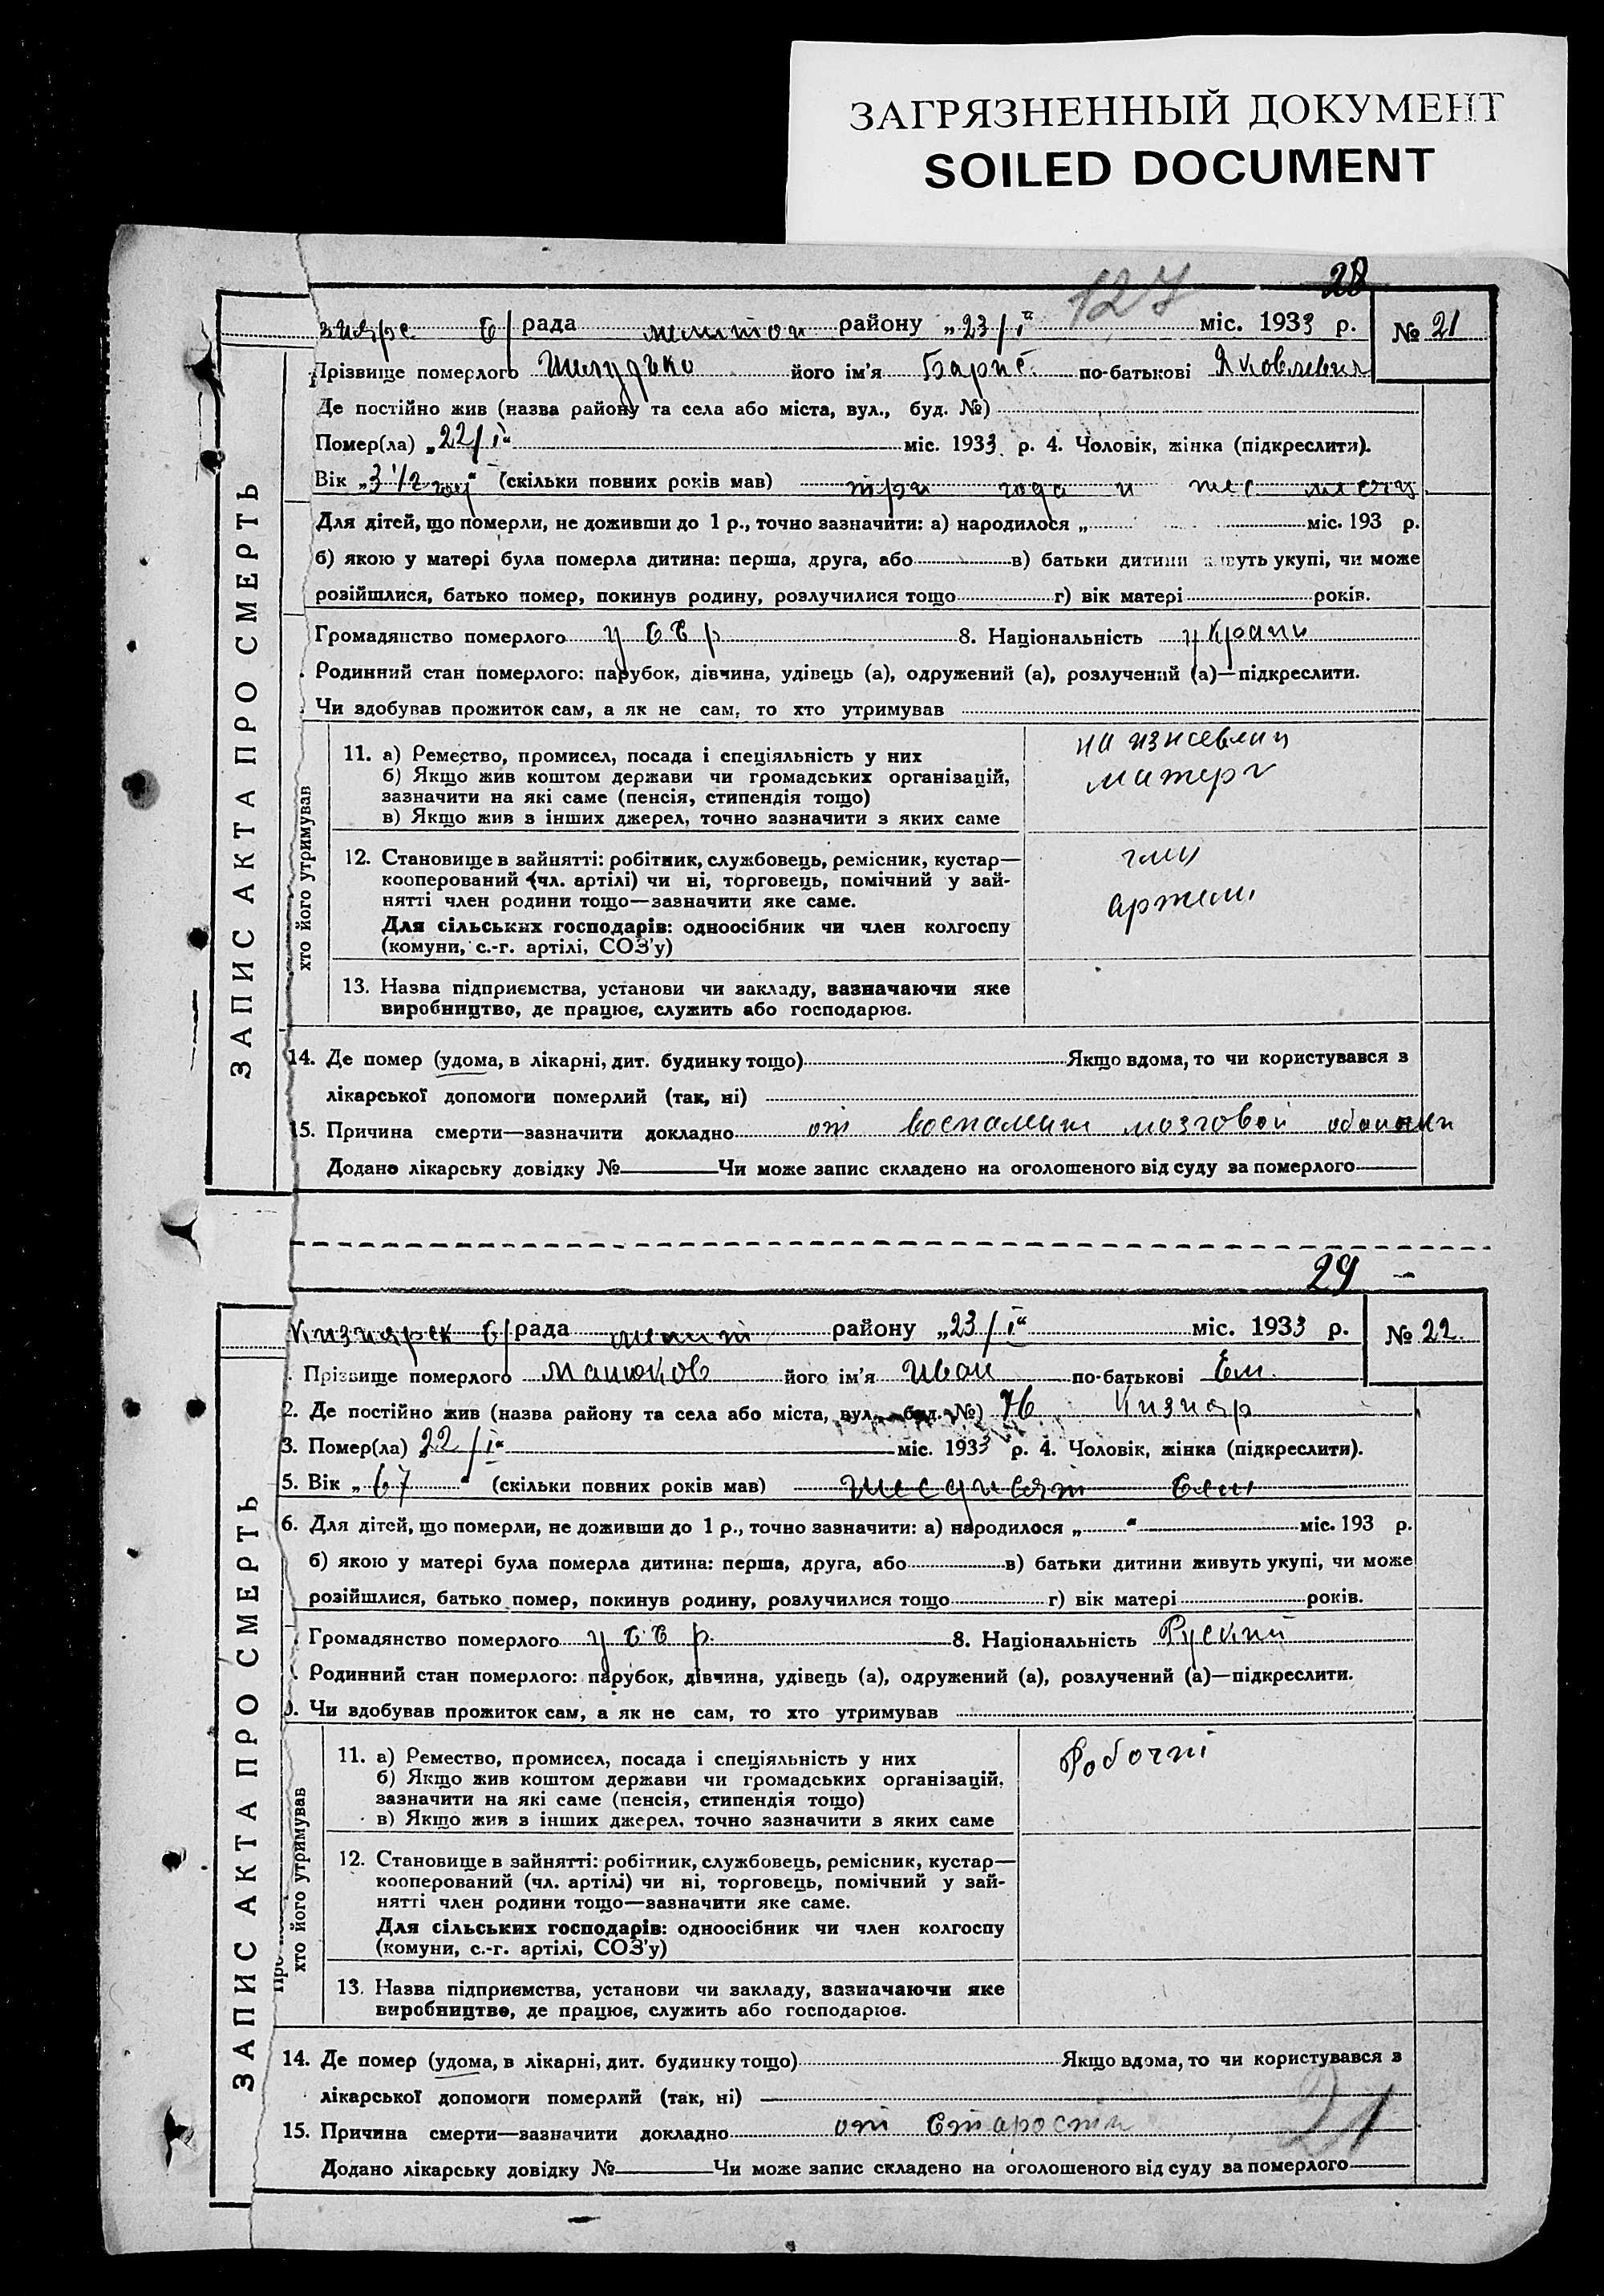 ЗАГРЯЗНЕННЫЙ ДОКУМЕНТ
SOILED DOCUMENT
127 28
рада района „23/I“ міс. 1933 р. № 21
Прізвище померлого його ім'я по-батькові Яковлевич
Де постійно жив (назва району та села або міста, вул., буд. №)
Помер(ла) „22/I“ міс. 1933 р. 4. Чоловік, жінка (підкреслити).
Вік „3 1/2 “ (скільки повних років мав) три года и шес месяц
Для дітей, що померли, не доживши до 1 р., точно зазначити: а) народилося „ міс. 193 р.
б) якою у матері була померла дитина: перша, друга, або в) батьки дитини живуть укупі, чи може
розійшлися, батько помер, покинув родину, розлучилися тощо г) вік матері років.
Громадянство померлого УССР 8. Національність украин
Родинний стан померлого: парубок, дівчина, удівець (а), одружений (а), розлучений (а)—підкреслити.
Чи здобував прожиток сам, а як не сам, то хто утримував
ЗАПИС АКТА ПРО СМЕРТЬ
хто його утримував
11. а) Ремество, промисел, посада і спеціяльність у них
б) Якщо жив коштом держави чи громадських організацій,
зазначити на які саме (пенсія, стипендія тощо)
в) Якщо жив з інших джерел, точно зазначити з яких саме
на
матери
12. Становище в зайнятті: робітник, службовець, ремісник, кустар—
кооперований (чл. артілі) чи ні, торговець, помічний у зай-
нятті член родини тощо—зазначити яке саме.
Для сільських господарів: одноосібник чи член колгоспу
(комуни, с.-г. артілі, СОЗ'у)
член
артели
13. Назва підприємства, установи чи закладу, зазначаючи яке
виробництво, де працює, служить або господарює.
14. Де помер (удома, в лікарні, дит. будинку тощо) Якщо вдома, то чи користувався з
лікарської допомоги померлий (так, ні)
15. Причина смерти—зазначити докладно от воспалении мозговой оболочки
Додано лікарську довідку № Чи може запис складено на оголошеного від суду за померлого
29 -
Кизиярск с/рада мелит району „23/I“ міс. 1933 р. № 22
Прізвище померлого Манюков його ім'я Иван по-батькові Ем.
2. Де постійно жив (назва району та села або міста, вул., буд. №) 76 Кизияр
3. Помер(ла) 22/I“ міс. 1933 р. 4. Чоловік, жінка (підкреслити).
5. Вік „67“ (скільки повних років мав) шесдисят сем
6. Для дітей, що померли, не доживши до 1 р., точно зазначити: а) народилося „ “ міс. 193 р.
б) якою у матері була померла дитина: перша, друга, або в) батьки дитини живуть укупі, чи може
розійшлися, батько помер, покинув родину, розлучилися тощо г) вік матері років.
Громадянство померлого УССР 8. Національність Руский
Родинний стан померлого: парубок, дівчина, удівець (а), одружений (а), розлучений (а)—підкреслити.
Чи здобував прожиток сам, а як не сам, то хто утримував
ЗАПИС АКТА ПРО СМЕРТЬ
хто його утримував
11. а) Ремество, промисел, посада і спеціяльність у них
б) Якщо жив коштом держави чи громадських організацій,
зазначити на які саме (пенсія, стипендія тощо)
в) Якщо жив з інших джерел, точно зазначити з яких саме
Робочий
12. Становище в зайнятті: робітник, службовець, ремісник, кустар—
кооперований (чл. артілі) чи ні, торговець, помічний у зай-
нятті член родини тощо—зазначити яке саме.
Для сільських господарів: одноосібник чи член колгоспу
(комуни, с.-г. артілі, СОЗ'у)
13. Назва підприємства, установи чи закладу, зазначаючи яке
виробництво, де працює, служить або господарює.
14. Де помер (удома, в лікарні, дит. будинку тощо) Якщо вдома, то чи користувався з
лікарської допомоги померлий (так, ні)
15. Причина смерти—зазначити докладно от старости
21
Додано лікарську довідку № Чи може запис складено на оголошеного від суду за померлого